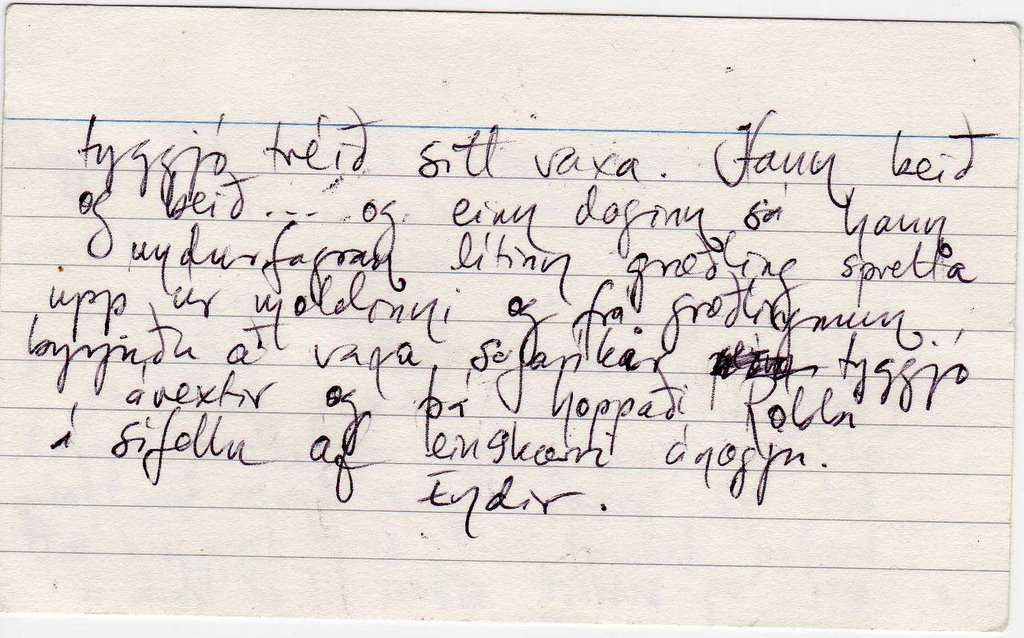 tyggjó tréið sitt vaxa. Hann beið
og beið... og einn daginn sá hann
undurfagran lítinn græðling spretta
upp úr moldinni og frá græðlingnum
byrjuðu að vaxa safaríkar tyggjó
ávextir og þá hoppaði
í sífellu af einskærri ánægju.
Endir.